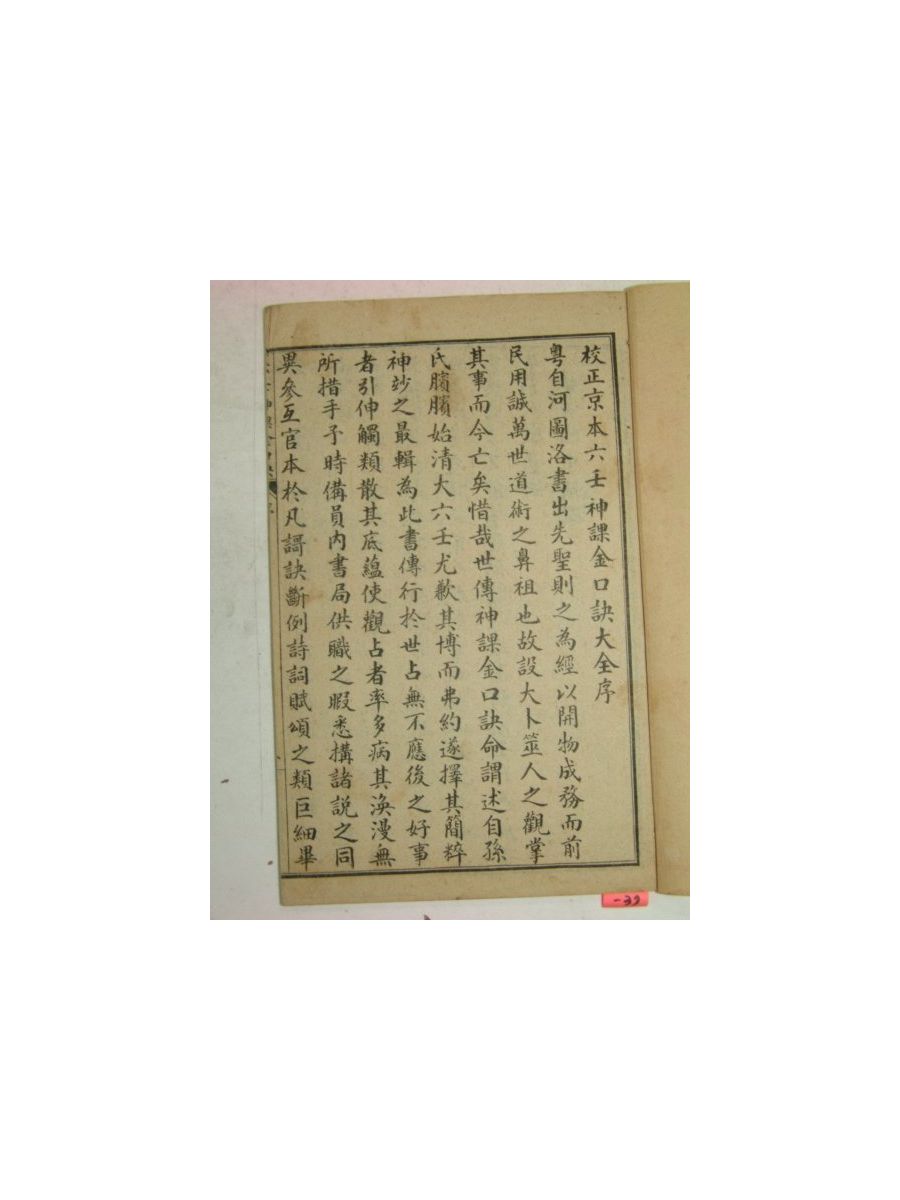 校正京本六壬神課金口訣大全序
粤自河圖洛書出先聖則之為經以開物成務而前
民用誠萬世道術之鼻祖也故設大卜簭人之觀掌
其事而今亡矣惜哉世傳神課金口訣命謂述自孫
氏臏臏始清大六壬尤歉其博而弗約遂擇其簡粹
神玅之最輯為此書傳行於世占無不應後之好事
者引伸觸類散其底蘊使觀占者率多病其渙漫無
所措手予時備員內書局供職之暇悉搆諸説之同
異參互官本於凡謌訣斷例詩詞賦頌之類巨細畢
-39